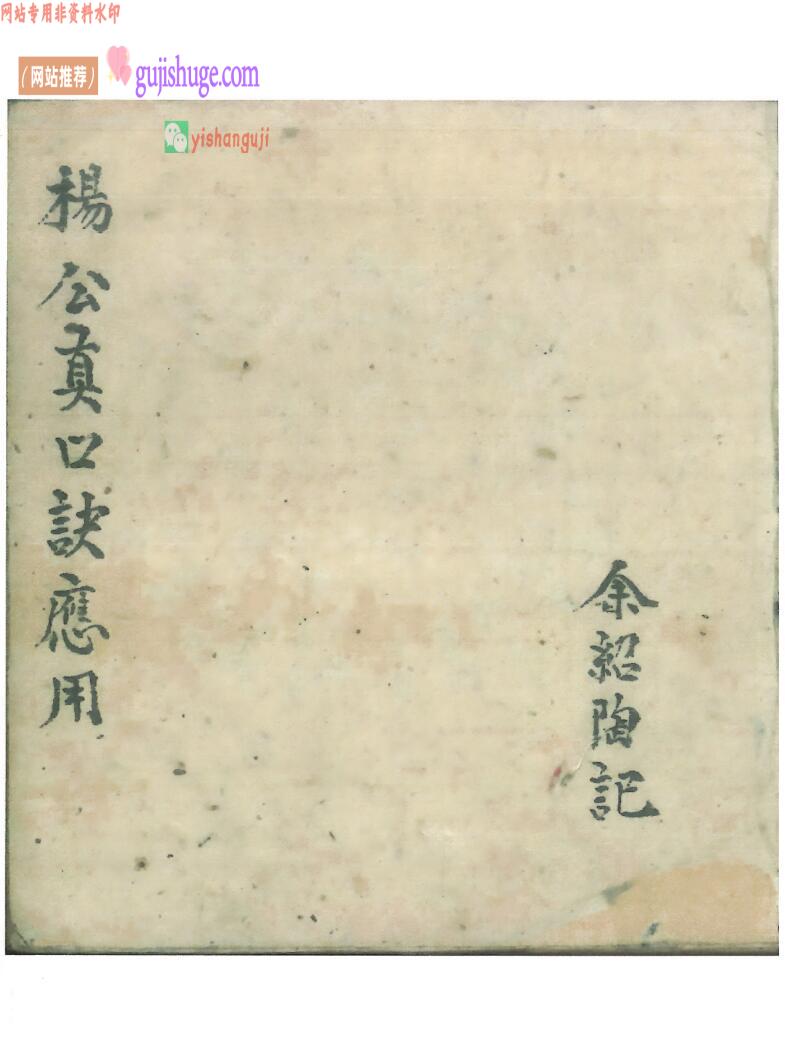 网站专用非资料水印
（网站推荐） gujishuge.com
yishanguji
楊公真口訣應用
余紹陶記